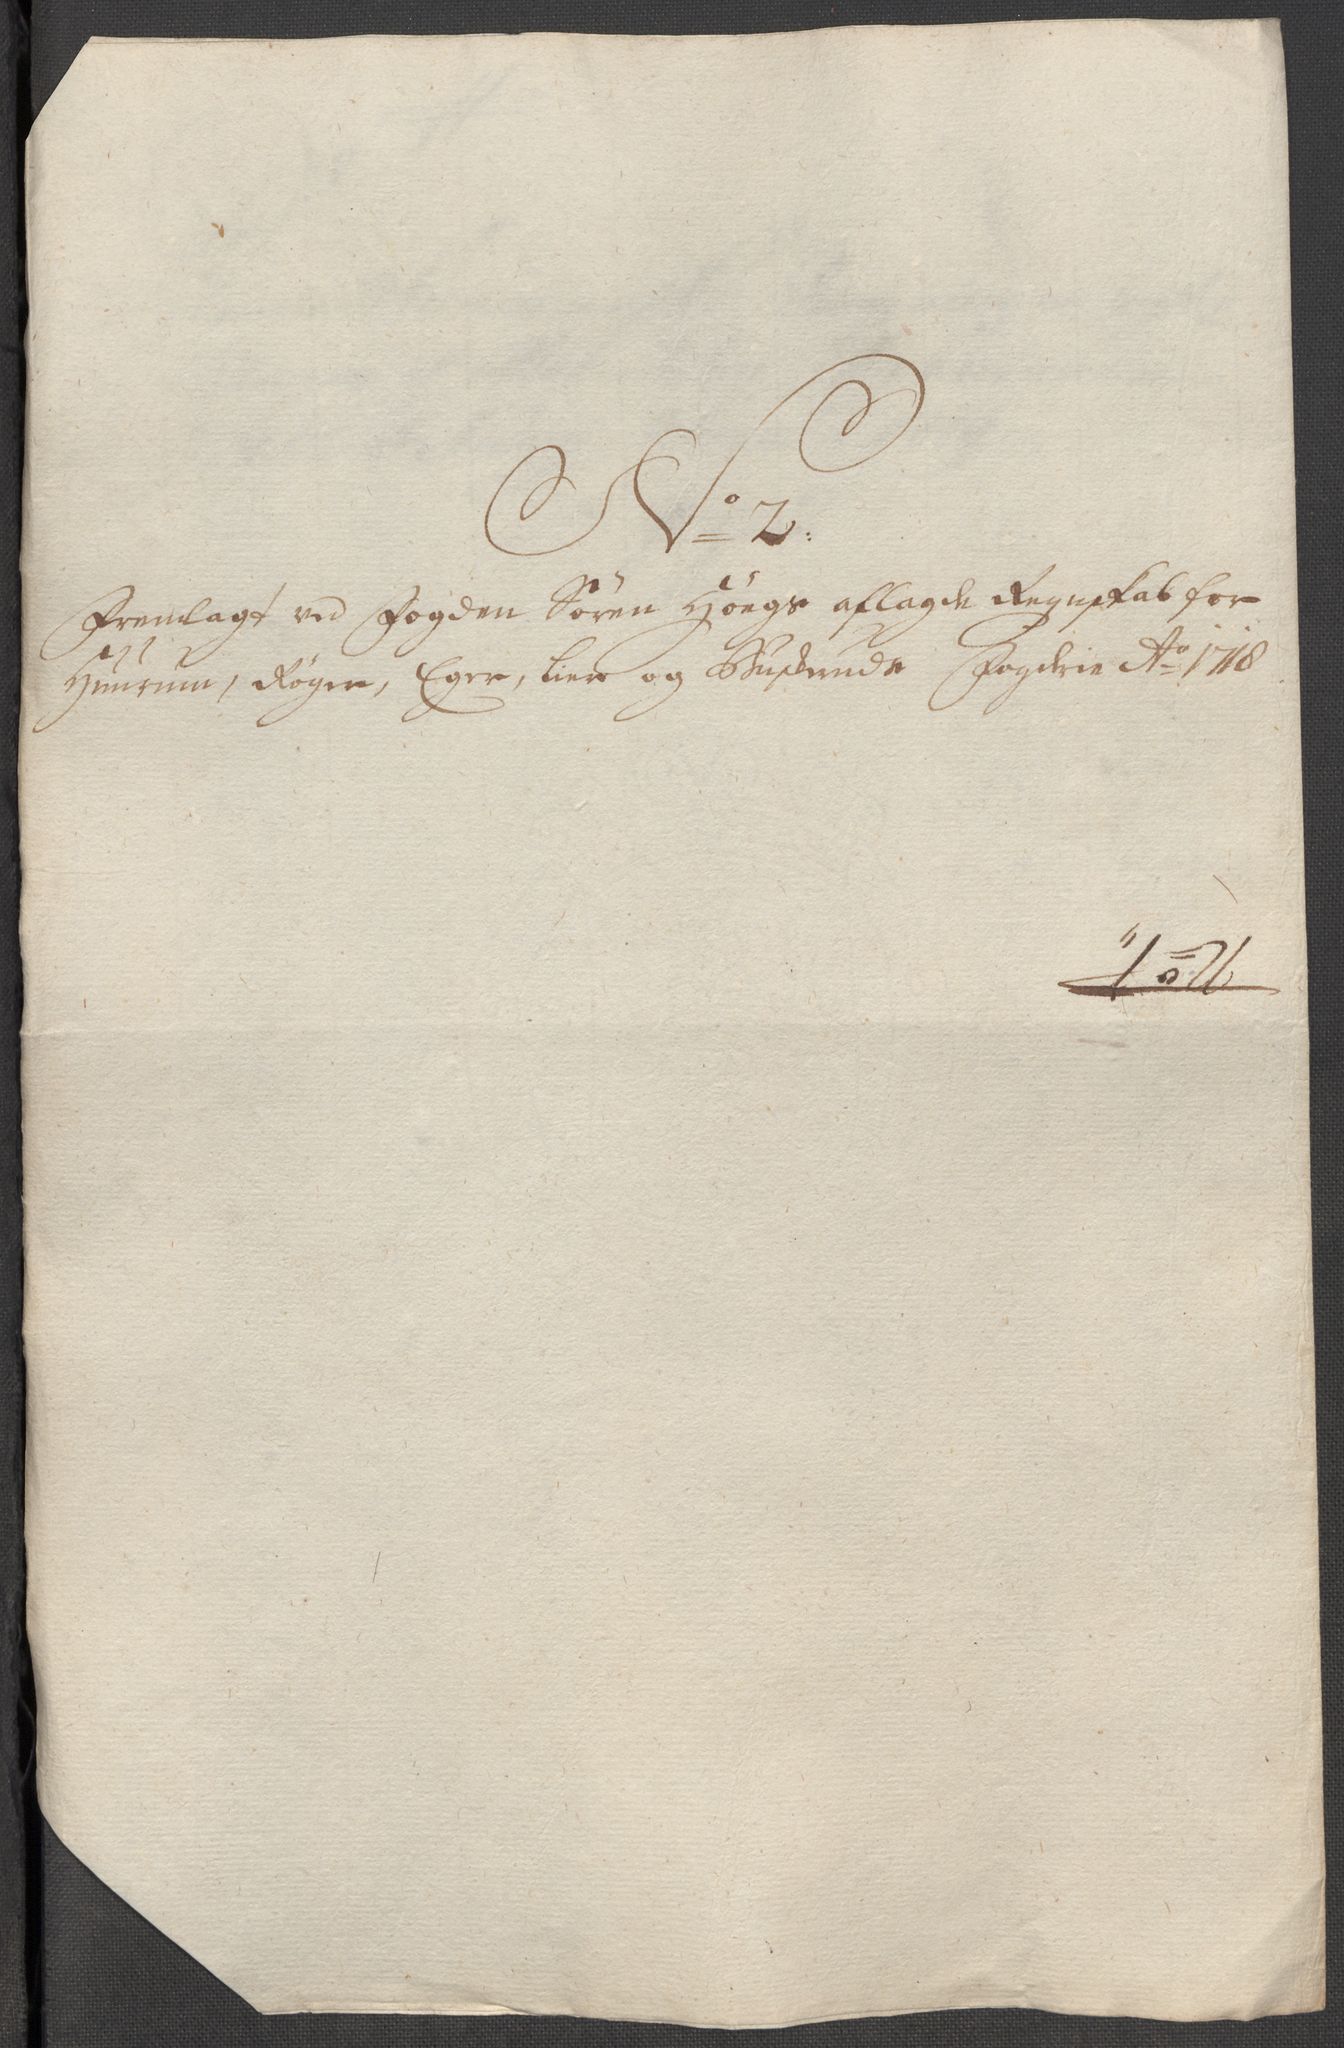 No 2:
Fremlagt ved Fogden Sören Höegs aflagde Regnskab for
Huurum, Röger, Eger, Lier og Buskeruds Fogderie Ao 1718